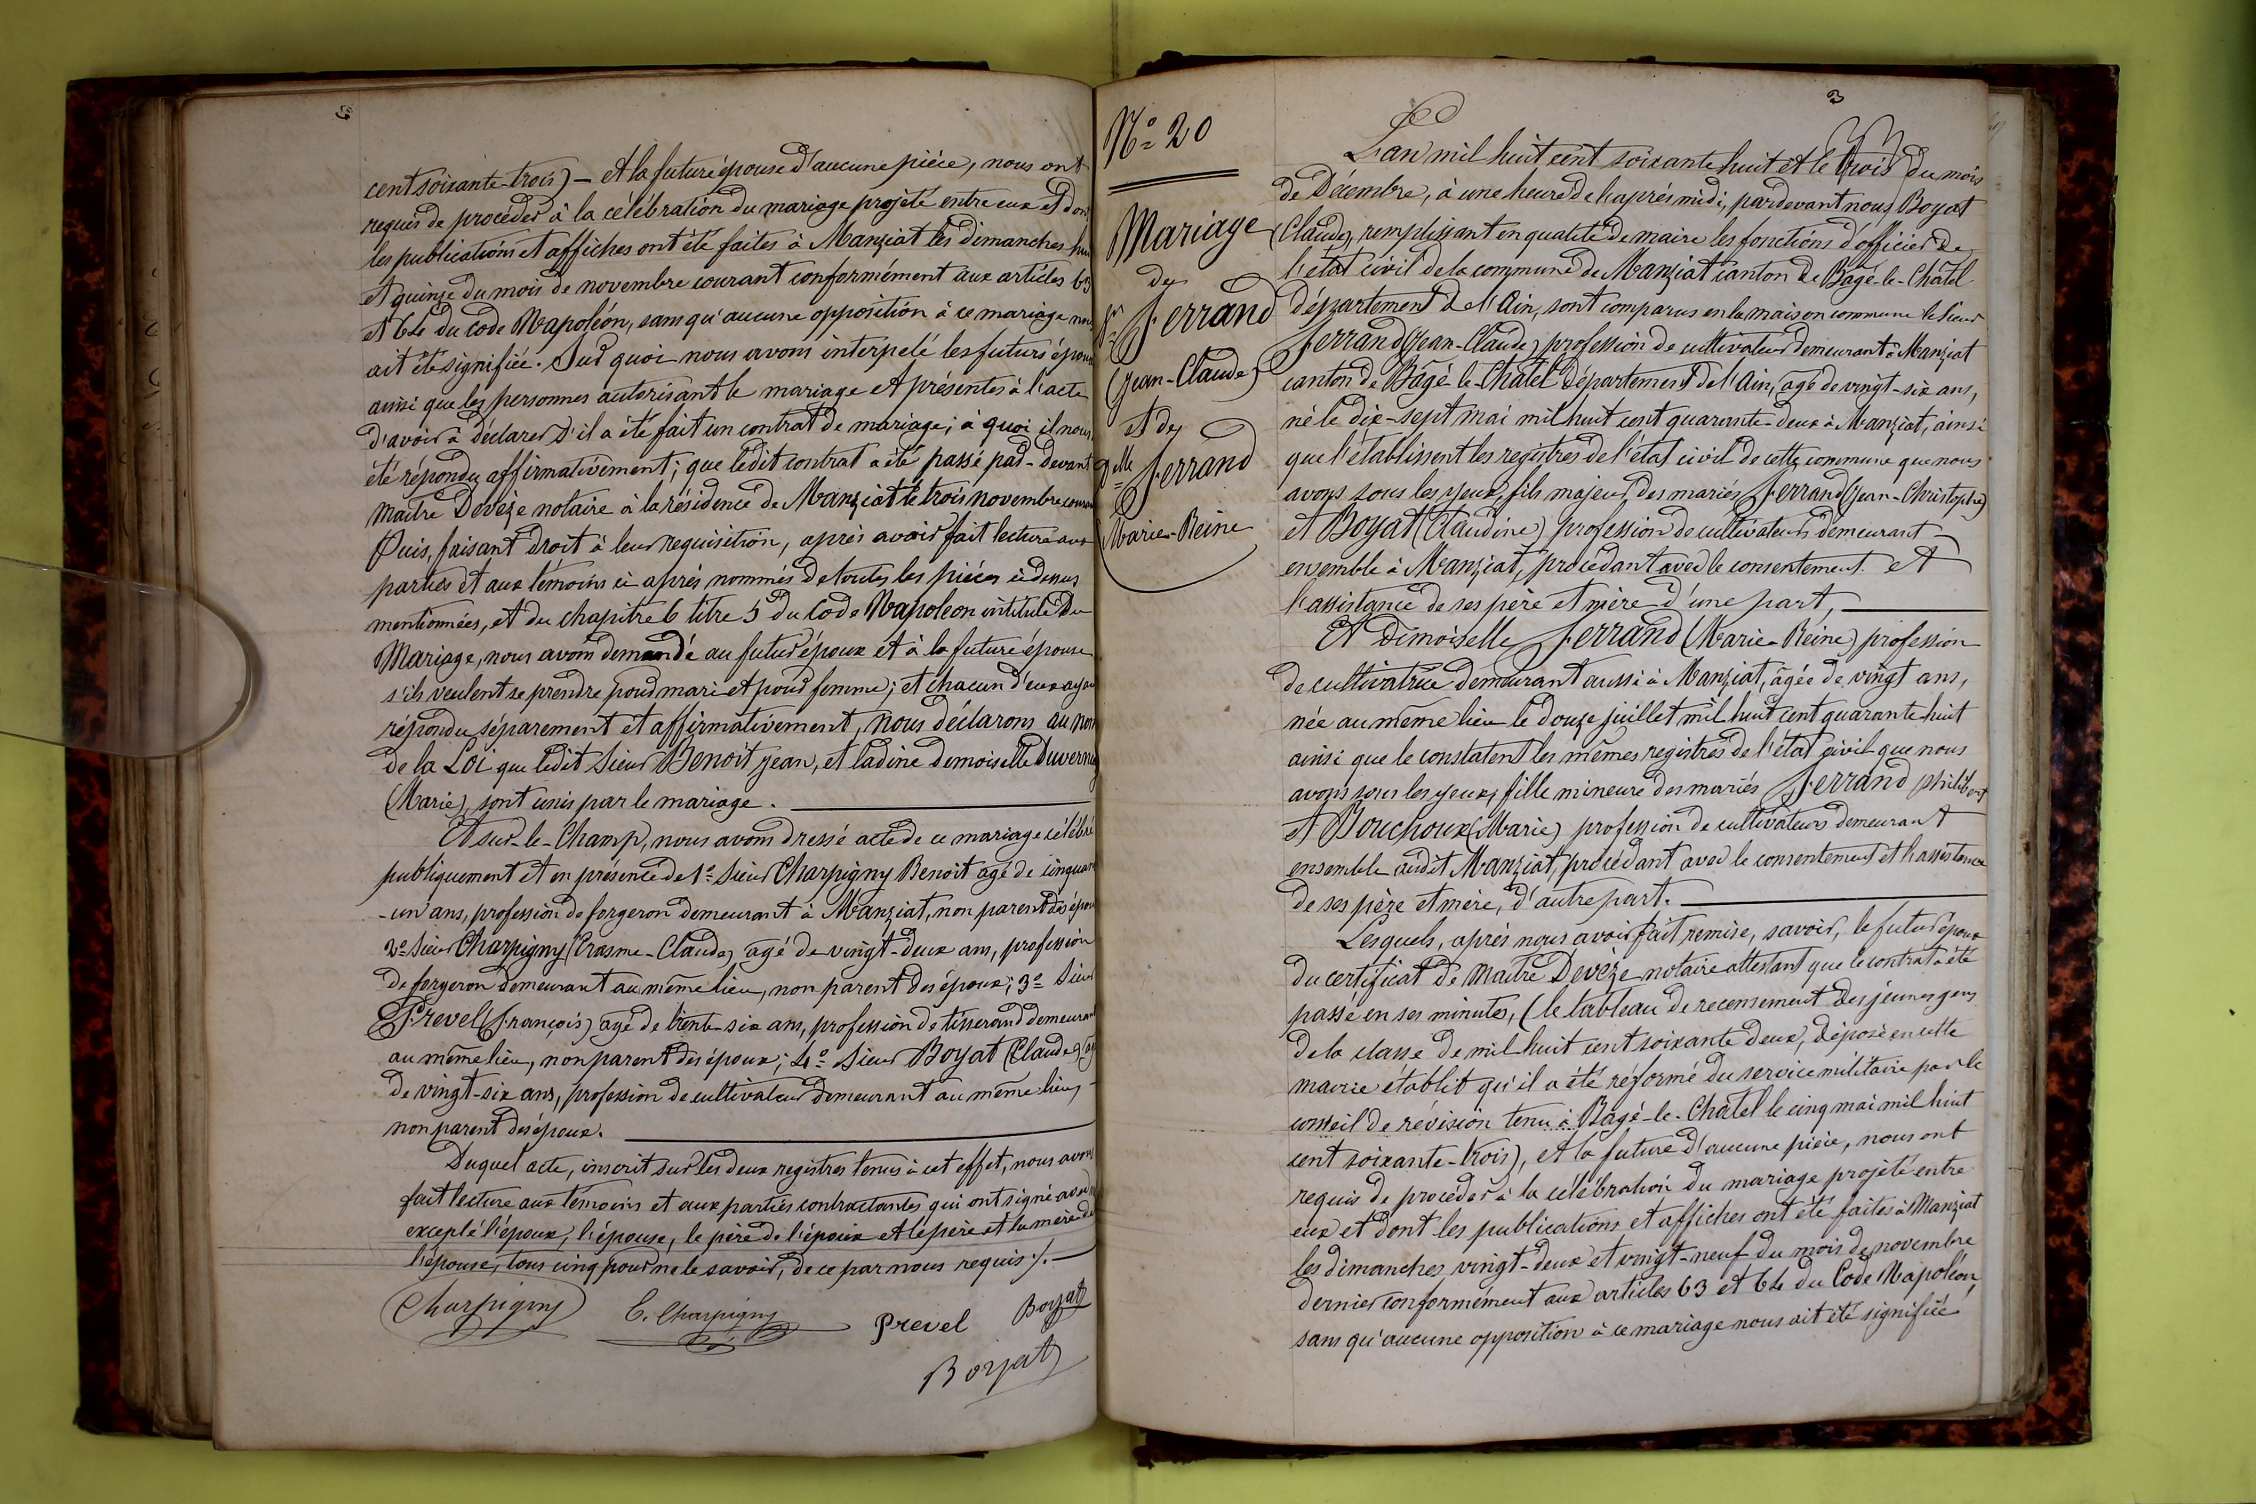 cent soixante-trois) — et la future épouse d'aucune pièce, nous ont
requis de procéder à la célébration du mariage projeté entre eux et dont
les publications et affiches ont été faites à Manziat les dimanches
et quinze du mois de novembre courant conformément aux articles 63
et 64 du code Napoléon, sans qu'aucune opposition à ce mariage nous
ait été signifiée. Sur quoi nous avons interpelé les futurs époux
ainsi que les personnes autorisant le mariage et présentes à l'acte
d'avoir à déclarer s'il a été fait un contrat de mariage; à quoi il nous
été répondu affirmativement; que ledit contrat a été passé par-devant
maître Devèze notaire à la résidence de Manziat le trois novembre
Puis, faisant droit à leur requisition, après avoir fait lecture aux
parties et aux témoins ci après nommés de toutes les pièces ci dessus
mentionnées, et du chapitre 6 titre 5 du Code Napoléon intitulé Du
Mariage, nous avons demandé au futur époux et à la future épouse
s'ils veulent se prendre pour mari et pour femme; et chacun d'eux ayant
répondu séparement et affirmativement, nous déclarons au nom
de la Loi que ledit sieur Benoit Jean, et ladine demoiselle Duvernay
(Marie), sont unis par le mariage.
Et sur-le-champ, nous avons dressé acte de ce mariage célébré
publiquement et en présence de 1º Sieur Charpigny Benoit agé de cinquante
-un ans, profession de forgeron demeurant à Manziat, non parent des époux
2º Sieur Charpigny (Erasme-Claude) agé de vingt-deux ans, profession
de forgeron demeurant au même lieu, non parent des époux; 3º Sieur
Prevel (François) agé de trente-six ans, profession de tisserand demeurant
au même lieu, non parent des époux; 4º Sieur Boyat (Claude)
de vingt-six ans, profession de cultivateur demeurant au même lieu,
non parent des époux.
Duquel acte, inscrit sur les deux registres tenus à cet effet, nous avons
fait lecture aux témoins et aux parties contractantes qui ont signé avec
excepté l'époux, l'épouse, le père de l'époux et le père et la mère de
l'épouse, tous cinq pour ne le savoir, de ce par nous requis ./.
Charpigny C. Charpigny Prevel Boyat
Boyat
3
Nº 20
Mariage
de
Sr Ferrand
(Jean-Claude)
et de
Delle Ferrand
Marie-Reine
L'an mil huit cent soixante huit et le trois du mois
de Décembre, à une heure de l'après midi, pardevant nous Boyat
(Claude), remplissant en qualité de maire les fonctions d'officier de
l'état civil de la commune de Manziat canton de Bâgé-le-Châtel
département de l'Ain, sont comparus en la maison commune le Sieur
Ferrand (Jean-Claude) profession de cultivateur demeurant à Manziat
canton de Bâgé-le-Châtel département de l'Ain, agé de vingt-six ans,
né le dix-sept mai mil huit cent quarante-deux à Manziat, ainsi
que l'établissent les registres de l'état civil de cette commune que nous
avons sous les yeux, fils majeur des mariés Ferrand (Jean-Christophe)
et Boyat (Claudine) profession de cultivateurs demeurant
ensemble à Manziat, procédant avec le consentement et
l'assistance de ses père et mère d'une part,
Et Demoiselle Ferrand (Marie-Reine) profession
de cultivatrice demeurant aussi à Manziat, âgée de vingt ans,
née au même lieu le douze juillet mil huit cent quarante huit
ainsi que le constatent les mêmes registres de l'état civil que nous
avons sous les yeux, fille mineure des mariés Ferrand Philibert
et Bouchoux (Marie) profession de cultivateurs demeurant
ensemble audit Manziat, procédant avec le consentement et l'assistance
de ses père et mère, d'autre part.
Lesquels, après nous avoir fait remise, savoir, le futur époux
du certificat de Maître Devèze notaire attestant que le contrat a été
passé en ses minutes, (le tableau de recensement des jeunes gens
de la classe de mil huit cent soixante deux, déposé en cette
mairie établit qu'il a été réformé du service militaire par le
conseil de révision tenu à Bâgé-le-Châtel le cinq mai mil huit
cent soixante-trois), et la future d'aucune pièce, nous ont
requis de procéder à la célébration du mariage projeté entre
eux et dont les publications et affiches ont été faites à Manziat
les dimanches vingt-deux et vingt-neuf du mois de novembre
dernier conformément aux articles 63 et 64 du Code Napoléon,
sans qu'aucune opposition à ce mariage nous ait été signifiée